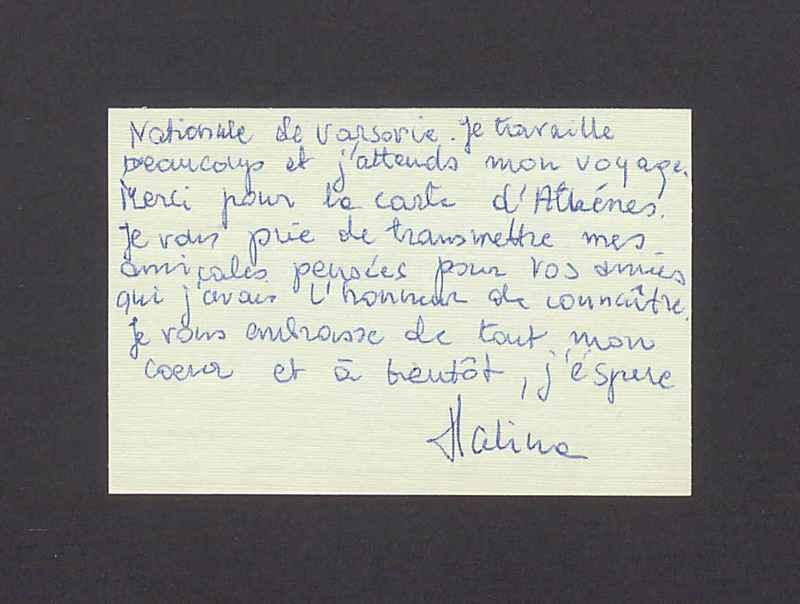 Nationale de Varsovie. Je travaille
beaucoup et j'attends mon voyage.
Merci pour la carte d'Athénes.
Je vous prie de transmettre mes
amicales pensées pour vos amies
qui j'avais l'honneur de connaître.
Je vous embrasse de tout mon
coeur et à bientôt, j'éspere
Halina